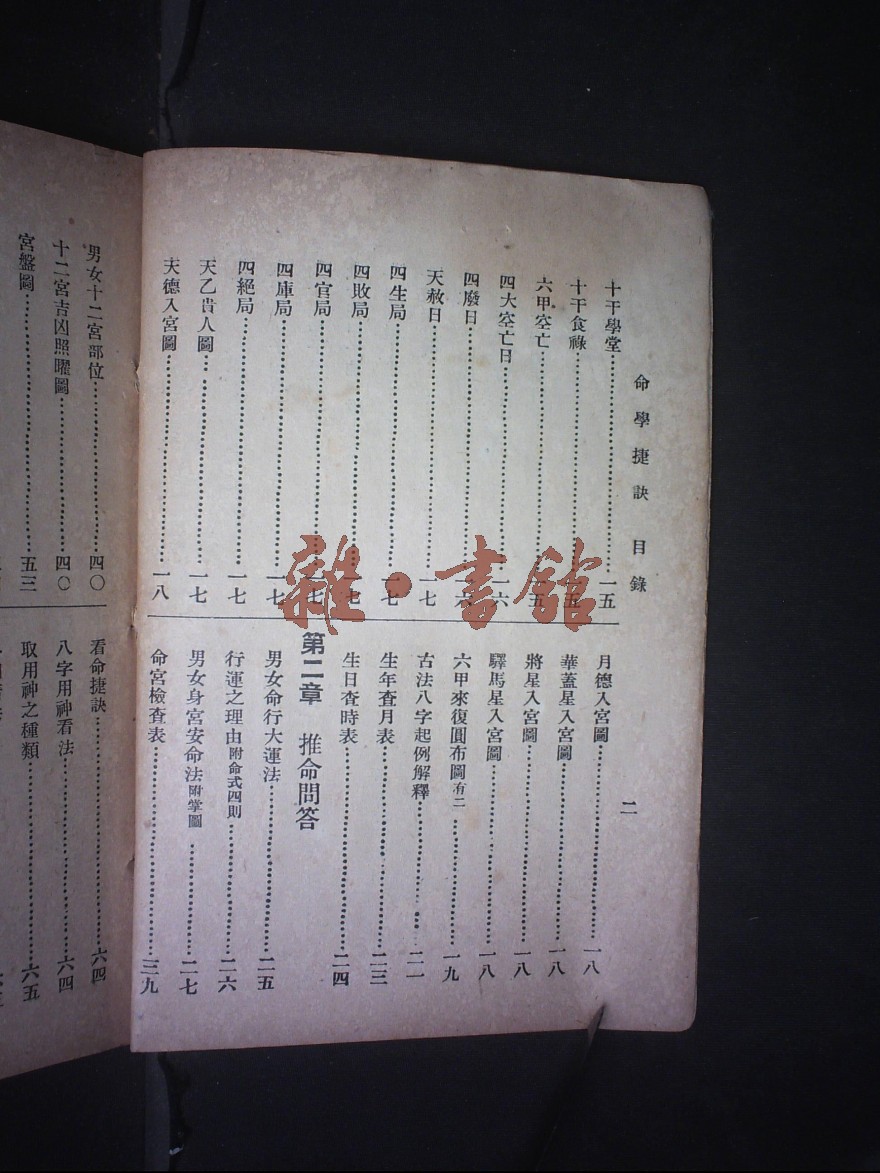 命學捷訣 目錄
二
十干學堂……一五
十干食祿……一五
六甲空亡……一五
四大空亡日……一六
四廢日……一六
天赦日……一七
四生局……一七
四敗局……一七
四官局……一七
四庫局……一七
四絕局……一七
天乙貴人圖……一七
天德入宮圖……一八
月德入宮圖……一八
華蓋星入宮圖……一八
將星入宮圖……一八
驛馬星入宮圖……一八
六甲來復圓布圖有二……一九
古法八字起例解釋……二一
生年查月表……二三
生日查時表……二四
第二章 推命問答
男女命行大運法……二五
行運之理由附命式四則……二六
男女身宮安命法附掌圖……二七
命宮檢查表……三九
男女十二宮部位……四〇
十二宮吉凶照曜圖……四〇
宮盤圖……五三
看命捷訣……六四
八字用神看法……六四
取用神之種類……六五
雜·書館